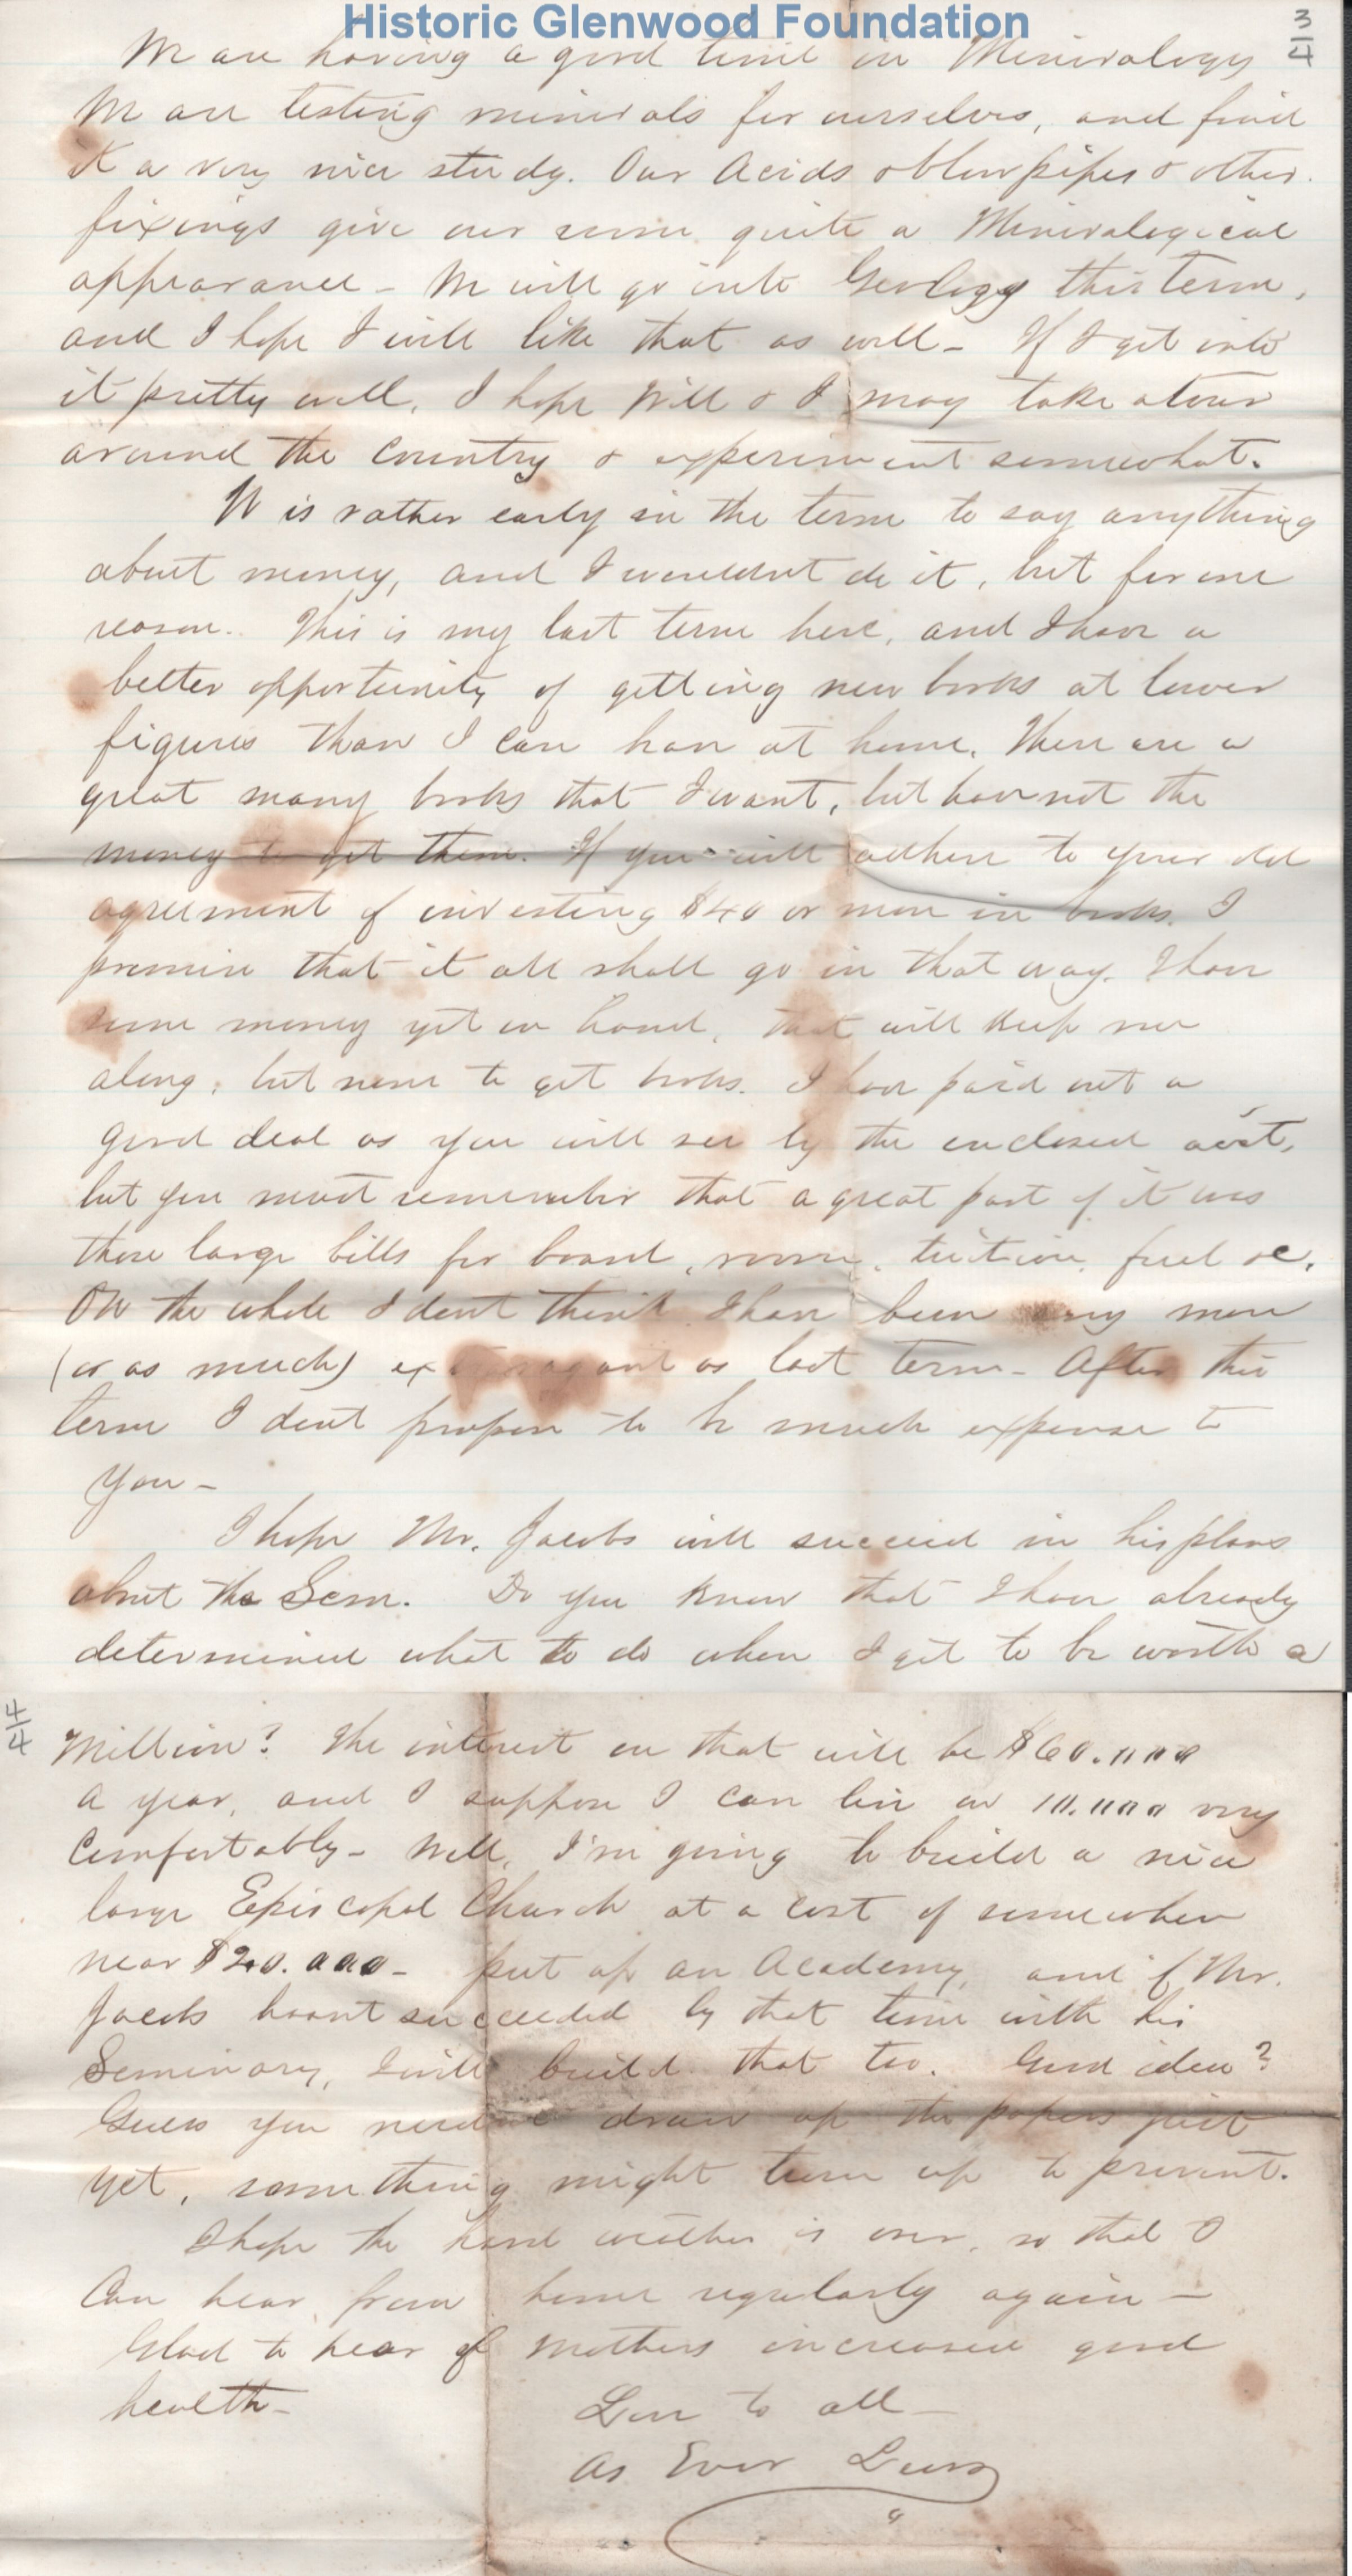 Historic Glenwood Foundation
3/4
We are having a good time in Mineralogy
We are testing minerals for ourselves, and find
it a very nice study. Our Acids & blowpipes & other
fixings give our room quite a Mineralogical
appearance - We will go into Geology this term,
and I hope I will like that as well - If I get into
it pretty well, I hope Will & I may take a tour
around the Country & experiment somewhat.
It is rather early in the term to say anything
about money, and I wouldnt do it, but for one
reason. This is my last term here, and I have a
better opportunity of getting new books at lower
figures than I can have at home. There are a
great many books that I want, but have not the
money to get them. If you will adhere to your old
agreement of investing $40 or more in books. I
promise that it all shall go in that way. I have
some money yet on hand, that will keep me
along, but none to get books. I have paid out a
good deal as you will see by the enclosed acct,
but you must remember that a great part of it was
those large bills for board, room, tuition, fuel &c.
On the whole I dont think I have been any more
(or as much) extravagant as last term - After this
term I dont propose to be much expense to
you -
I hope Mr. Jacobs will succeed in his plans
about the Sem. Do you know that I have already
determined what to do when I get to be worth a
4/4
Million? The interest on that will be $60.000
a year, and I suppose I can live on 10.000 very
Comfortably - Well, I'm going to build a nice
large Episcopal Church at a cost of somewhere
near $20.000 - put up an Academy, and if Mr.
Jacobs hasnt succeeded by that time with his
Seminary, I will build that too. Good idea?
Guess you needn't draw up the papers just
yet, something might turn up to prevent.
I hope the hard weather is over, so that I
Can hear from home regularly again -
Glad to hear of Mothers increased good
health -
Love to all -
As Ever